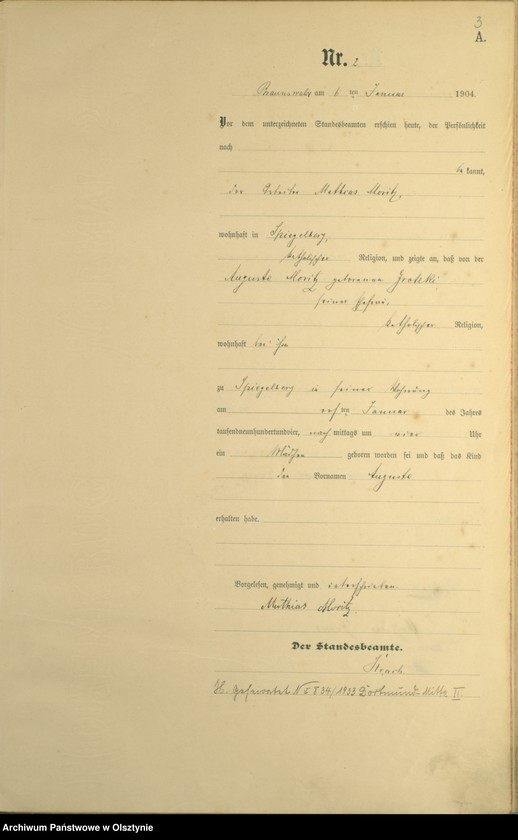 3
A.
Nr. 2
am 6 ten Januar 1904.
Vor dem unterzeichneten Standesbeamten erschien heute, der Persönlichkeit
nach
be kannt,
der Arbeiter Mathias Moritz,
wohnhaft in Spiegelberg,
katholischer Religion, und zeigte an, daß von der
Auguste Moritz geborenen
seiner Ehefrau
katholischer Religion,
wohnhaft bei ihm
zu Spiegelberg in seiner Wohnung
am ten Januar des Jahres
tausendneunhundertundvier, nach mittags um vier Uhr
ein Mädchen geboren worden sei und daß das Kind
den Vornamen Auguste
erhalten habe.
Vorgelesen, genehmigt und unterschrieben.
Mathias Moritz.
Der Standesbeamte.
Geheiratet N 534/1933 Dortmund-Mitte II.
Archiwum Państwowe w Olsztynie